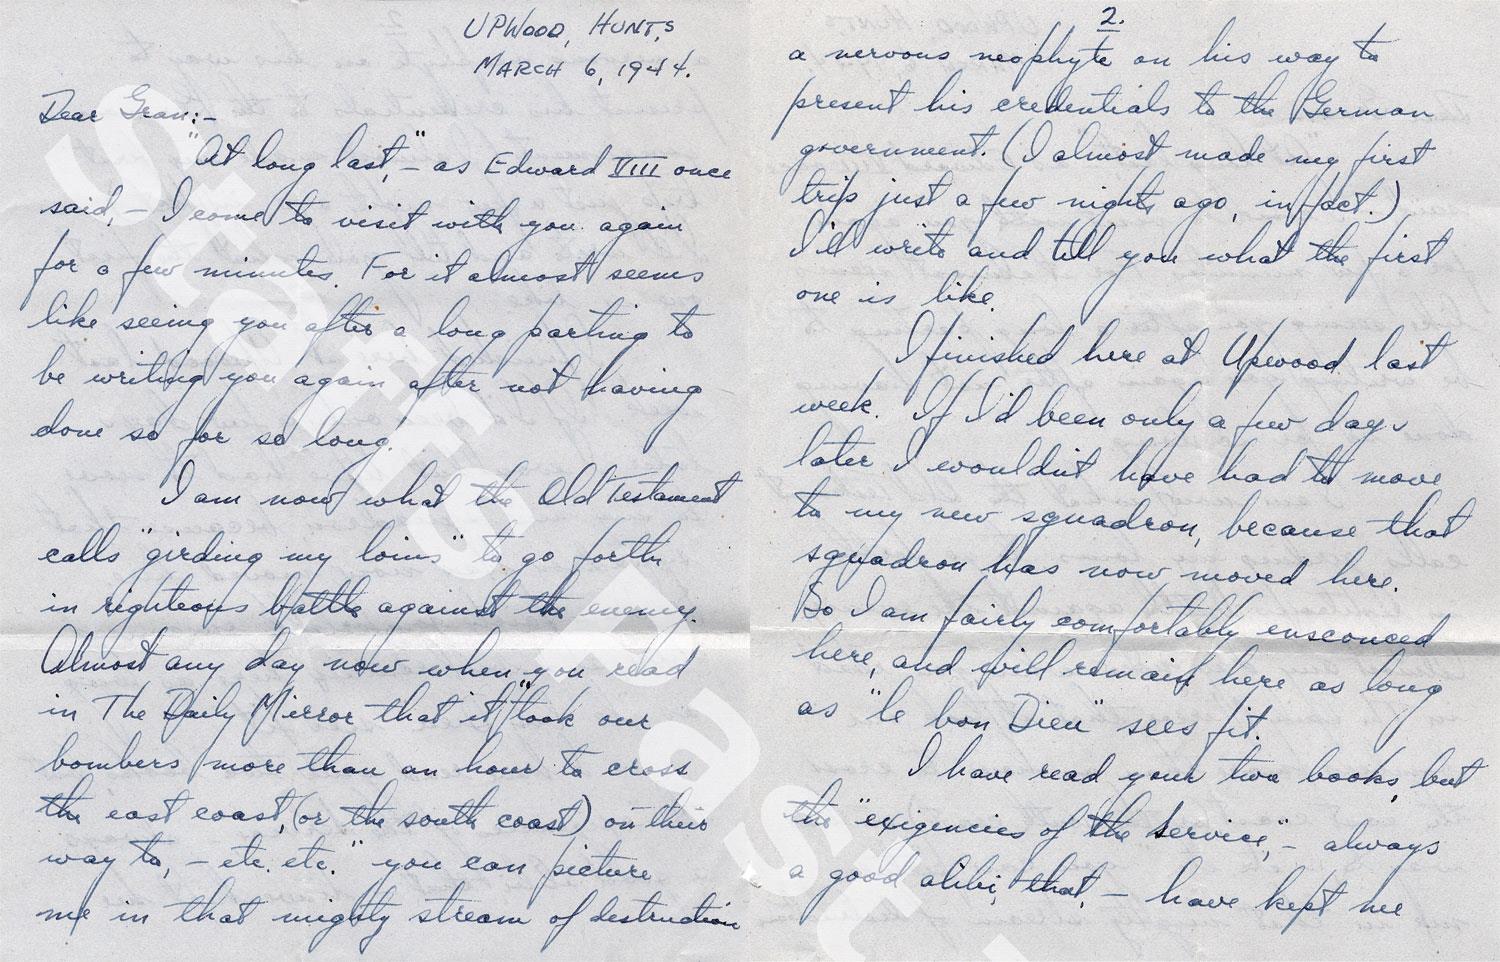 UPWOOD, HUNTS
MARCH 6, 1944.
Dear Gran:-
"At long last," – as Edward VIII once
said, – I come to visit with you again
for a few minutes. For it almost seems
like seeing you after a long parting to
be writing you again after not having
done so for so long.
I am now what the Old Testament
calls "girding my loins" to go forth
in righteous battle against the enemy.
Almost any day now when you read
in The Daily Mirror that it "took our
bombers more than an hour to cross
the east coast, (or the south coast) on their
way to, – etc. etc." you can picture
me in that mighty stream of destruction
2.
a nervous neophyte on his way to
present his credentials to the German
government. (I almost made my first
trip just a few nights ago, in fact.)
I'll write and tell you what the first
one is like.
I finished here at Upwood last
week. If I'd been only a few days
later I wouldn't have had to move
to my new squadron, because that
squadron has now moved here.
So I am fairly comfortably ensconced
here, and will remain here as long
as "le bon Dieu" sees fit.
I have read your two books, but
the "exigencies of the service", – always
a good alibi, that, – have kept me
Staffs Past